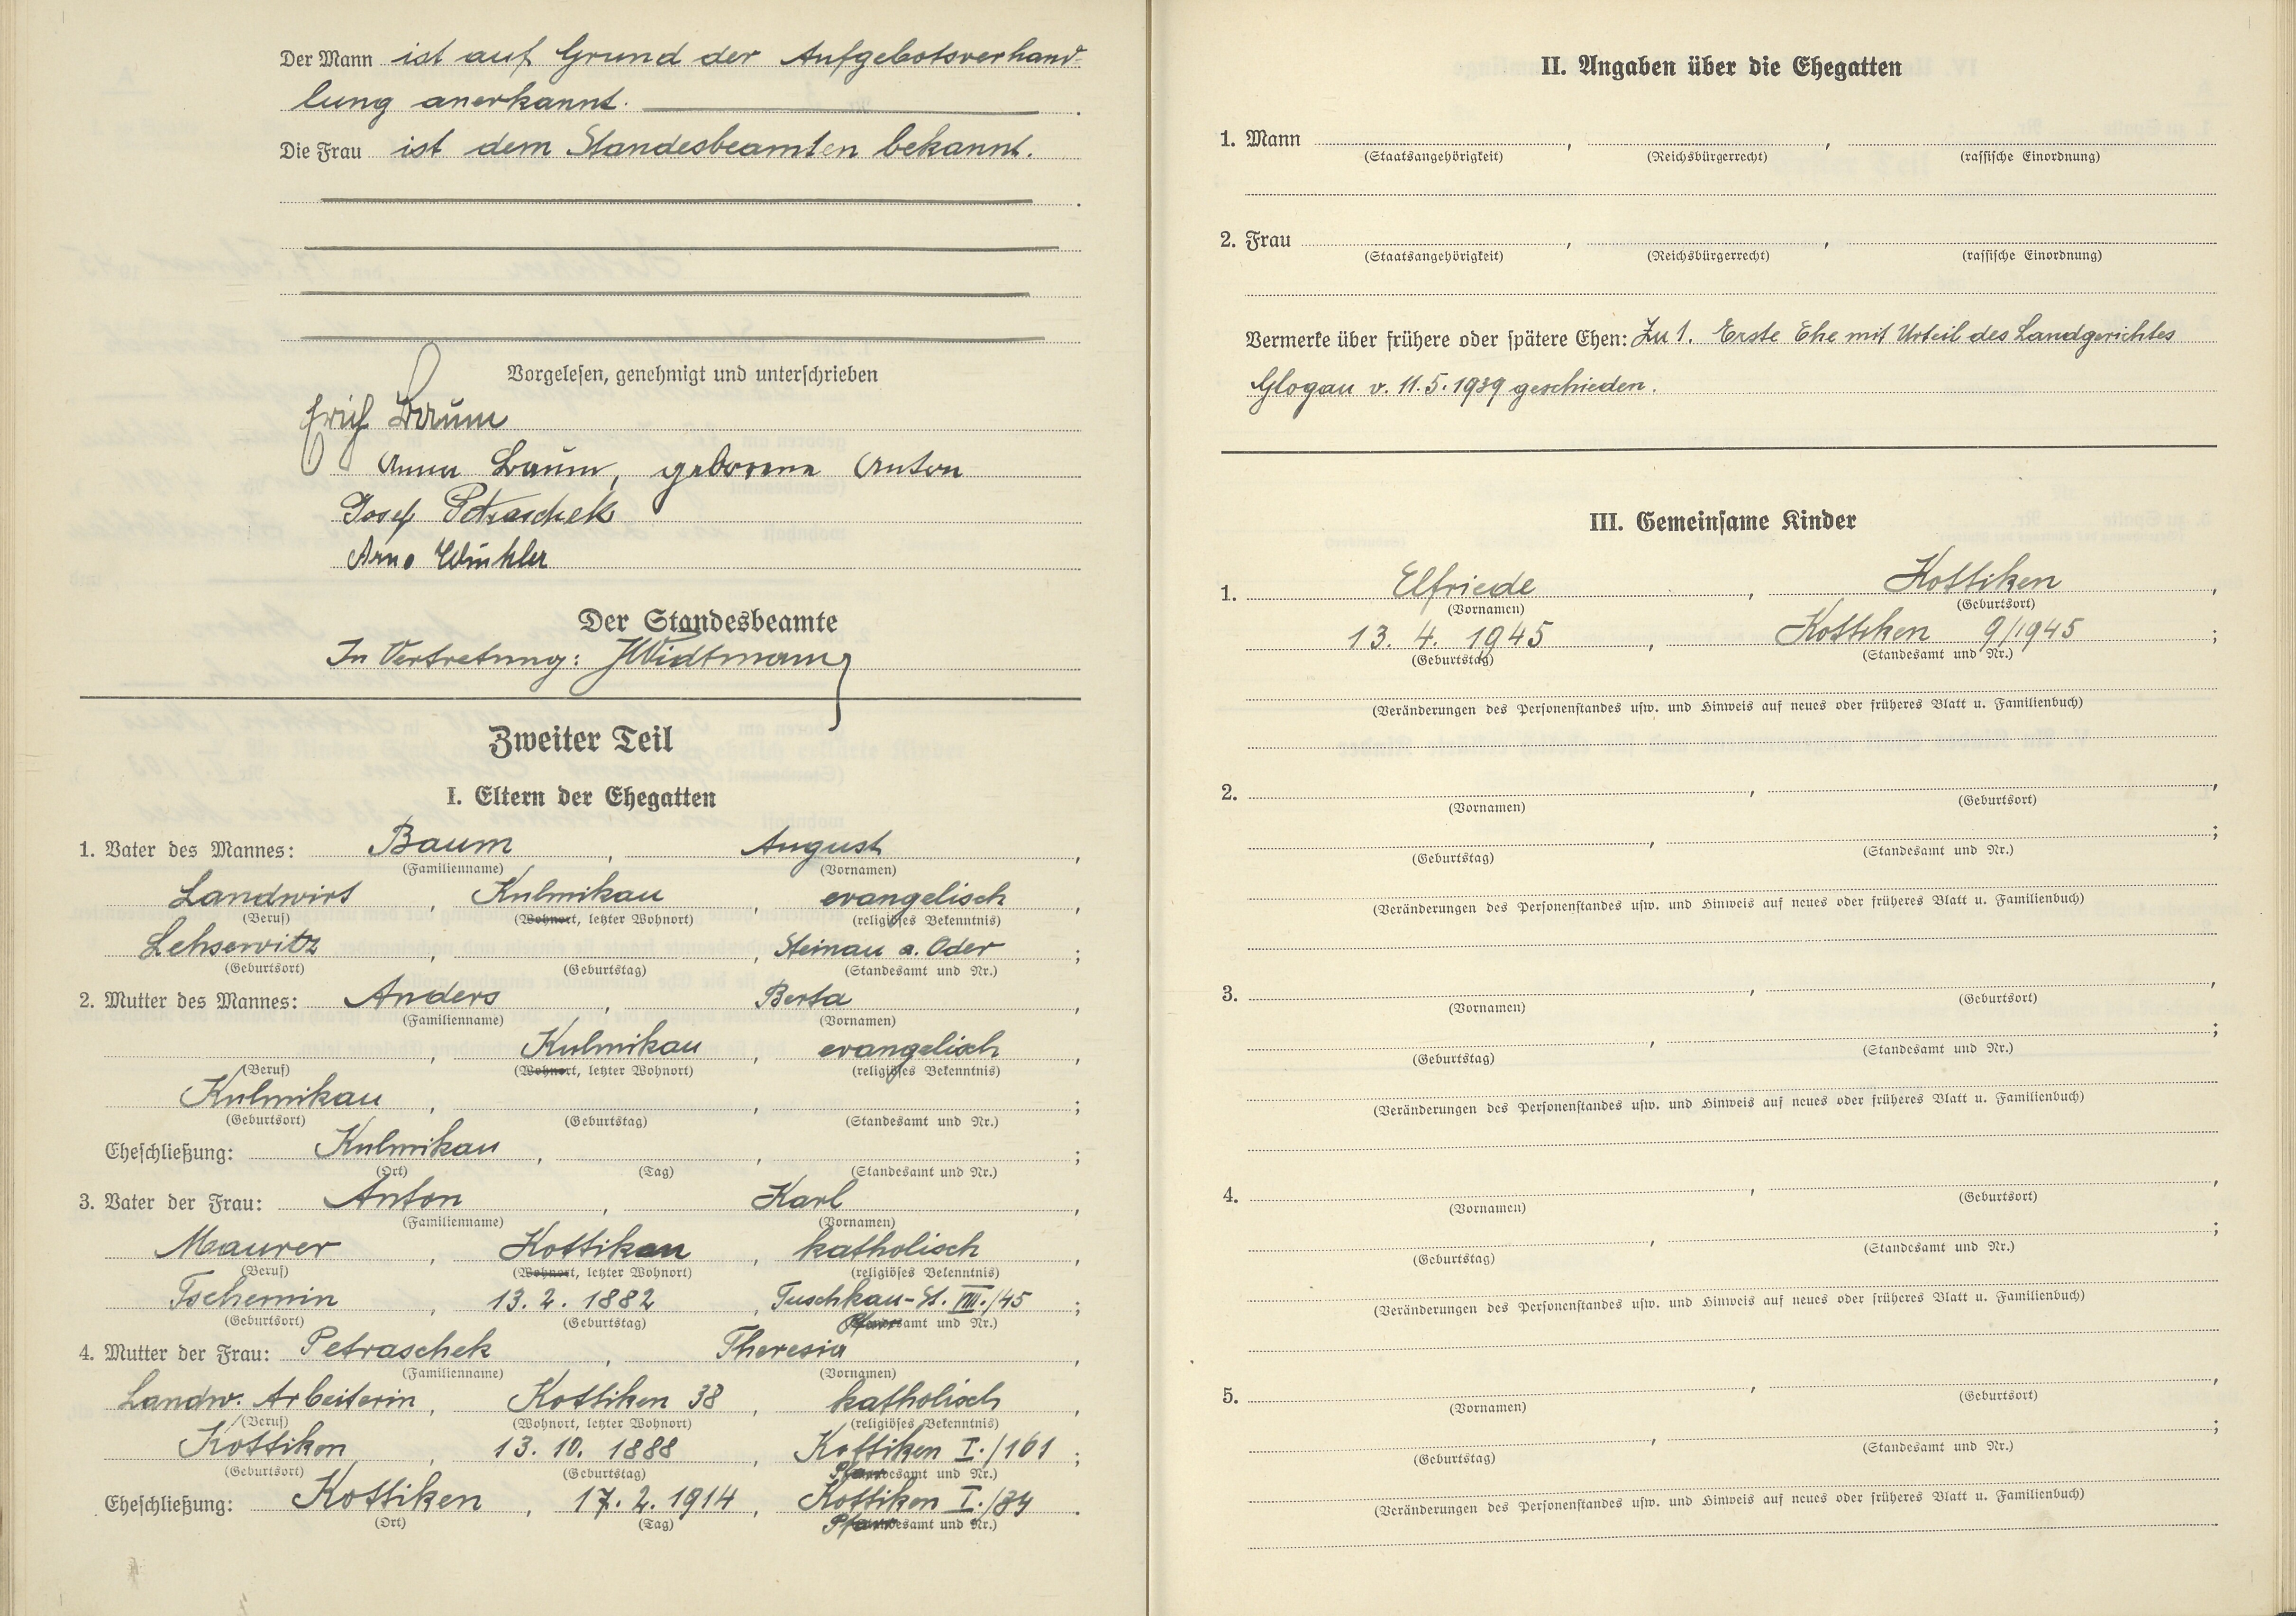 Der Mann ist auf Grund der Aufgebotsverhand-
lung anerkannt.
Die Frau ist dem Standesbeamten bekannt.
Vorgelesen, genehmigt und unterschrieben
Erich Baum
Anna Baum, geborene Anton
Josef Petraschek
Arno Winkler
Der Standesbeamte
In Vertretung: JWidtmann
Zweiter Teil
I. Eltern der Ehegatten
1. Vater des Mannes: Baum, August,
(Familienname) (Vornamen)
Landwirt, Kulmikau, evangelisch,
(Beruf) (Wohnort, letzter Wohnort) (religiöses Bekenntnis)
Lehserwitz, , Steinau a. Oder;
(Geburtsort) (Geburtstag) (Standesamt und Nr.)
2. Mutter des Mannes: Anders, Berta,
(Familienname) (Vornamen)
, Kulmikau, evangelisch,
(Beruf) (Wohnort, letzter Wohnort) (religiöses Bekenntnis)
Kulmikau, , ;
(Geburtsort) (Geburtstag) (Standesamt und Nr.)
Eheschließung: Kulmikau, , ;
(Ort) (Tag) (Standesamt und Nr.)
3. Vater der Frau: Anton, Karl,
(Familienname) (Vornamen)
Maurer, Kottiken, katholisch,
(Beruf) (Wohnort, letzter Wohnort) (religiöses Bekenntnis)
Tschemin, 13. 2. 1882, Tuschkau-St. VIII./45;
(Geburtsort) (Geburtstag) Pfarramt und Nr.)
4. Mutter der Frau: Petraschek, Theresia,
(Familienname) (Vornamen)
Landw. Arbeiterin, Kottiken 38, katholisch,
(Beruf) (Wohnort, letzter Wohnort) (religiöses Bekenntnis)
Kottiken, 13. 10. 1888, Kottiken I./161;
(Geburtsort) (Geburtstag) Pfarr amt und Nr.)
Eheschließung: Kottiken, 17. 2. 1914, Kottiken I./84.
(Ort) (Tag) Pfarr amt und Nr.)
II. Angaben über die Ehegatten
1. Mann , ,
(Staatsangehörigkeit) (Reichsbürgerrecht) (rassische Einordnung)
2. Frau , ,
(Staatsangehörigkeit) (Reichsbürgerrecht) (rassische Einordnung)
Vermerke über frühere oder spätere Ehen: Zu 1. Erste Ehe mit Urteil des Landgerichtes
Glogau v. 11.5.1939 geschieden.
III. Gemeinsame Kinder
1. Elfriede, Kottiken,
(Vornamen) (Geburtsort)
13. 4. 1945, Kottiken 9/1945;
(Geburtstag) (Standesamt und Nr.)
(Veränderungen des Personenstandes usw. und Hinweis auf neues oder früheres Blatt u. Familienbuch)
2. , ,
(Vornamen) (Geburtsort)
, ;
(Geburtstag) (Standesamt und Nr.)
(Veränderungen des Personenstandes usw. und Hinweis auf neues oder früheres Blatt u. Familienbuch)
3. , ,
(Vornamen) (Geburtsort)
, ;
(Geburtstag) (Standesamt und Nr.)
(Veränderungen des Personenstandes usw. und Hinweis auf neues oder früheres Blatt u. Familienbuch)
4. , ,
(Vornamen) (Geburtsort)
, ;
(Geburtstag) (Standesamt und Nr.)
(Veränderungen des Personenstandes usw. und Hinweis auf neues oder früheres Blatt u. Familienbuch)
5. , ,
(Vornamen) (Geburtsort)
, ;
(Geburtstag) (Standesamt und Nr.)
(Veränderungen des Personenstandes usw. und Hinweis auf neues oder früheres Blatt u. Familienbuch)